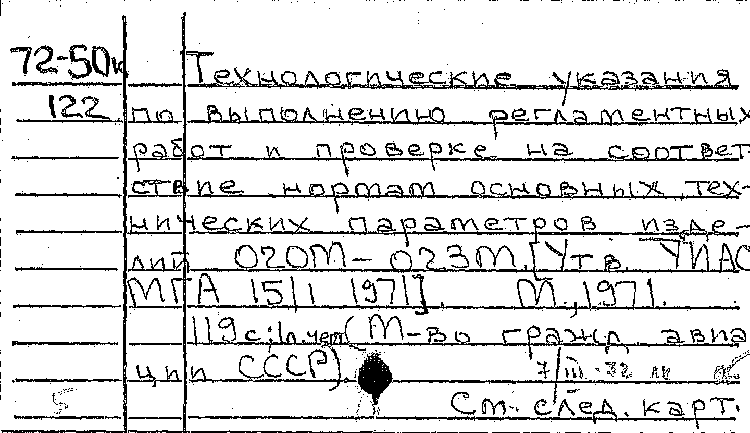 72-50к Технологические указания
122 по выполнению регламентных
работ и проверке на соответ-
ствие нормам основных тех-
нических параметров изде-
лий 020М-023М. [Утв. УИАС
МГА 15/I 1971]. М., 1971.
119 с; 1л. черт (М-во гражд. авиа
ции СССР).
7/III-
5
См. след. карт.